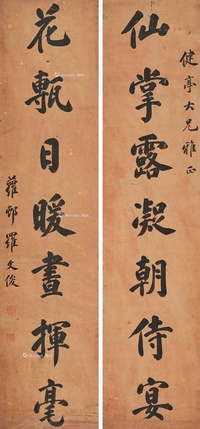 健亭大兄雅正
仙掌露凝朝侍宴
花甎日暖晝揮毫
蘿邨羅文俊